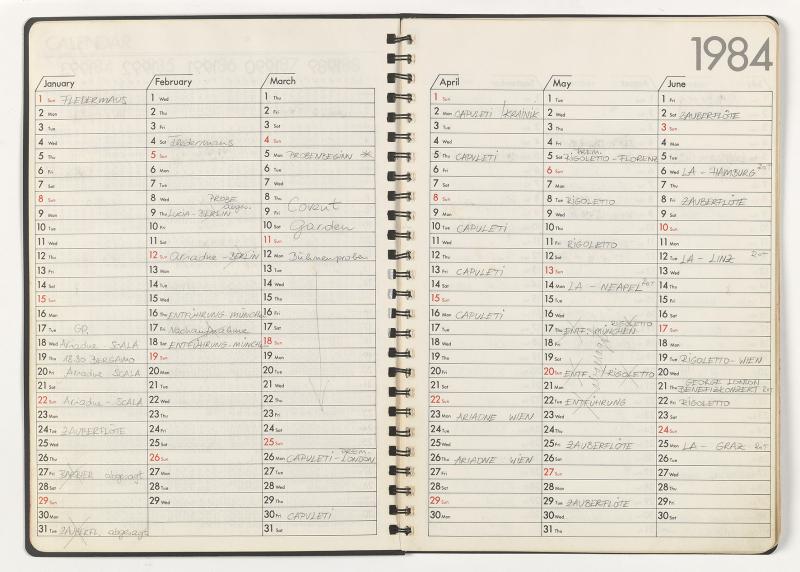 1984
January
1 Sun FLEDERMAUS
2 Mon
3 Tue
4 Wed
5 Thu
6 Fri
7 Sat
8 Sun
9 Mon
10 Tue
11 Wed
12 Thu
13 Fri
14 Sat
15 Sun
16 Mon
17 Tue GP
18 Wed Ariadne - SCALA
19 Thu 18.30 BERGAMO
20 Fri Ariadne SCALA
21 Sat
22 Sun Ariadne - SCALA
23 Mon
24 Tue ZAUBERFLÖTE
25 Wed
26 Thu
27 Fri BARBIER abgesagt
28 Sat
29 Sun
30 Mon
31 Tue ZAUBERFL. abgesagt
February
1 Wed
2 Thu
3 Fri
4 Sat Fledermaus
5 Sun
6 Mon
7 Tue
8 Wed PROBE
9 Thu LUCIA - BERLIN
10 Fri
11 Sat
12 Sun Ariadne - BERLIN
13 Mon
14 Tue
15 Wed
16 Thu ENTFÜHRUNG - MÜNCH
17 Fri Nachaufnahme
18 Sat ENTFÜHRUNG - MÜNCH
19 Sun
20 Mon
21 Tue
22 Wed
23 Thu
24 Fri
25 Sat
26 Sun
27 Mon
28 Tue
29 Wed
March
1 Thu
2 Fri
3 Sat
4 Sun
5 Mon PROBENBEGINN
6 Tue
7 Wed
8 Thu Covent
9 Fri
10 Sat Garden
11 Sun
12 Mon Bühnenproben
13 Tue
14 Wed
15 Thu
16 Fri
17 Sat
18 Sun
19 Mon
20 Tue
21 Wed
22 Thu
23 Fri
24 Sat
25 Sun
26 Mon CAPULETI - PREM. LONDON
27 Tue
28 Wed
29 Thu
30 Fri CAPULETI
31 Sat
April
1 Sun
2 Mon CAPULETI / KRAINIK
3 Tue
4 Wed
5 Thu CAPULETI
6 Fri
7 Sat
8 Sun
9 Mon
10 Tue CAPULETI
11 Wed
12 Thu
13 Fri CAPULETI
14 Sat
15 Sun
16 Mon CAPULETI
17 Tue
18 Wed
19 Thu
20 Fri
21 Sat
22 Sun
23 Mon ARIADNE WIEN
24 Tue
25 Wed
26 Thu ARIADNE WIEN
27 Fri
28 Sat
29 Sun
30 Mon
May
1 Tue
2 Wed
3 Thu
4 Fri
PREM.
5 Sat RIGOLETTO - FLORENZ
6 Sun
7 Mon
8 Tue RIGOLETTO
9 Wed
10 Thu
11 Fri RIGOLETTO
12 Sat
13 Sun
14 Mon LA - NEAPEL
15 Tue
16 Wed
17 Thu ENTF. MÜNCHEN RIGOLETTO
18 Fri
19 Sat
20 Sun ENTF. / RIGOLETTO
21 Mon
22 Tue ENTFÜHRUNG
23 Wed
24 Thu
25 Fri ZAUBERFLÖTE
26 Sat
27 Sun
28 Mon
29 Tue ZAUBERFLÖTE
30 Wed
31 Thu
June
1 Fri
2 Sat ZAUBERFLÖTE
3 Sun
4 Mon
5 Tue
6 Wed LA - HAMBURG
7 Thu
8 Fri ZAUBERFLÖTE
9 Sat
10 Sun
11 Mon
12 Tue LA - LINZ
13 Wed
14 Thu
15 Fri
16 Sat
17 Sun
18 Mon
19 Tue RIGOLETTO - WIEN
20 Wed
GEORGE LONDON
21 Thu BENEFIZKONZERT
22 Fri RIGOLETTO
23 Sat
24 Sun
25 Mon LA - GRAZ
26 Tue
27 Wed
28 Thu
29 Fri
30 Sat